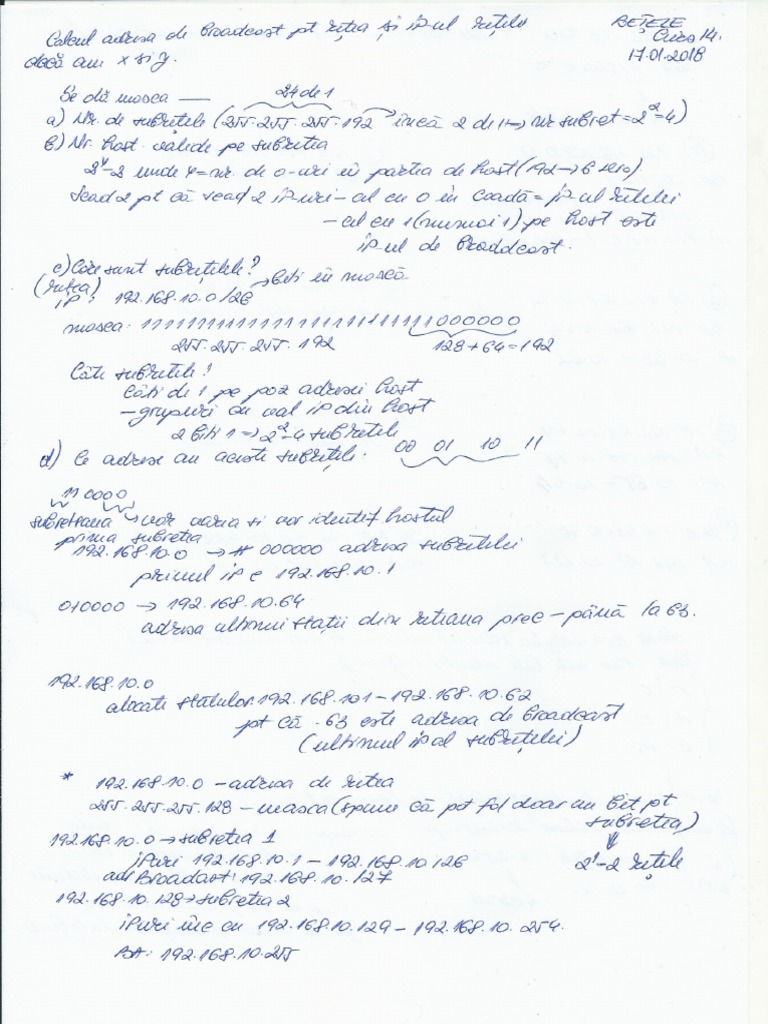 REȚELE
Curs 14.
17.01.2018
Calcul adresa de broadcast pt rețea și ip-ul rețelei
dacă am x și y.
Se dă masca —
24 de 1
a) Nr. de subrețele (255.255.255.192 → încă 2 de 1 → nr subret = 2² = 4)
b) Nr. host valide pe subrețea
2^y-2 unde y = nr. de 0-uri în partea de host (192 → 6 zero)
Scad 2 pt că scad 2 ip-uri - al cu 0 în coadă = ip-ul rețelei
- al cu 1 (numai 1) pe host este
ip-ul de broadcast.
c) Care sunt subrețelele?
(rețea) → biți în mască
IP: 192.168.10.0/26
masca: 11111111111111111111111111000000
255.255.255.192 128+64=192
Câte subrețele?
Câți de 1 pe poz adresei host
- grupuri cu val ip din host
2 biți 1 => 2² = 4 subrețele
d) Ce adrese au aceste subrețele. 00 01 10 11
110000
subreteaua → vor varia si vor identif hostul
prima subretea
192.168.10.0 → 000000 adresa subrețelei
primul ip e 192.168.10.1
010000 → 192.168.10.64
adresa ultimului stații din reteaua prec - până la 63.
192.168.10.0
alocate 192.168.10.1 - 192.168.10.62
pt că .63 este adresa de broadcast
(ultimul ip al subrețelei)
* 192.168.10.0 - adresa de rețea
255.255.255.128 - masca (spune că pot fol doar un bit pt
subretea)
192.168.10.0 → subretea 1
2¹ = 2 rețele
ipuri 192.168.10.1 - 192.168.10.126
adr Broadcast: 192.168.10.127
192.168.10.128 → subretea 2
ipuri înc cu 192.168.10.129 - 192.168.10.254.
BA: 192.168.10.255